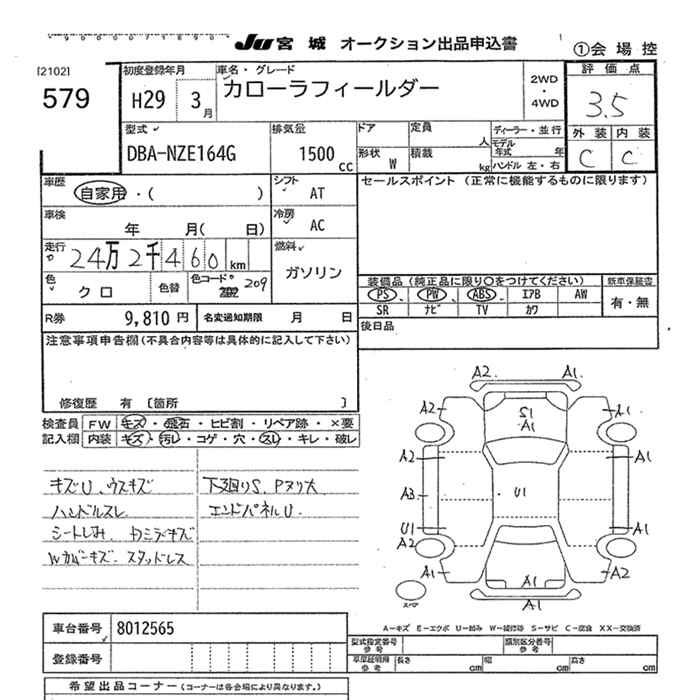 JU 宮城 オークション出品申込書
①会場控
[2102]
579
初度登録年月
H29 3月
車名・グレード
カローラフィールダー
2WD・4WD
評価点
3.5
外装 内装
C C
型式
DBA-NZE164G
排気量
1500cc
ドア 定員 人
形状 W 積載 kg
ディーラー・並行
モデル年式 年
ハンドル 左・右
車歴 自家用・( )
シフト AT
車検 年 月( 日)
冷房 AC
走行 24万2千460km
燃料 ガソリン
色 クロ 色替 色コード 209
セールスポイント (正常に機能するものに限ります)
装備品 (純正品に限り○をつけてください)
新車保証書
PS PW ABS エアB AW
有・無
SR ナビ TV カワ
R券 9,810円 名変通知期限 月 日
後日品
注意事項申告欄(不具合内容等は具体的に記入して下さい)
修復歴 有 [箇所 ]
検査員記入欄
FW キズ・飛石・ヒビ割・リペア跡・×要
内装 キズ・汚レ・コゲ・穴・スレ・キレ・破レ
キズU、ウスキズ
ハンドルスレ
シートしみ
Wカバーキズ スタッドレス
下廻りS、Pヌリ大
エンドパネルU.
A2 A1
A2 S1 A1
A1
A2 A1
A3 U1
U1 A1
A2
A1 A1 A2
A1
スペア
A−キズ E−エクボ U−凹み W−補修跡 S−サビ C−腐食 XX−交換済
車台番号 8012565
登録番号
型式指定番号参考
類別区分番号参考
車庫証明用参考 長さ cm 幅 cm 高さ cm
希望出品コーナー (コーナーは各会場により異なります。)